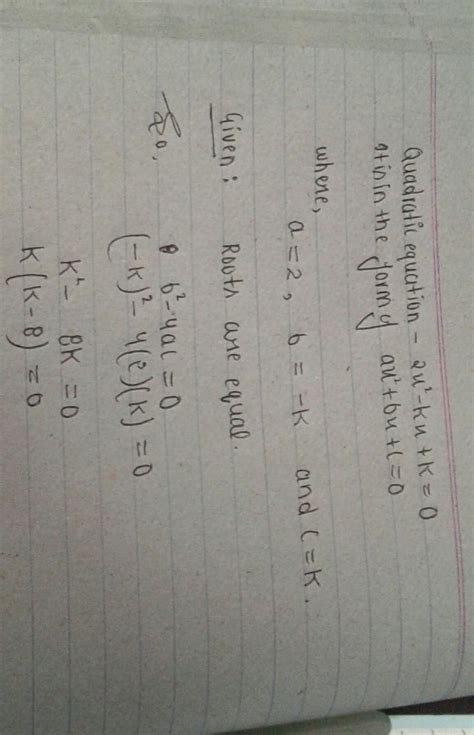 Quadratic equation - 2x²-kx+k=0
It is in the form of ax²+bx+c=0
where,
a=2, b=-k and c=k.
Given: Roots are equal.
So,
b²-4ac=0
(-k)²-4(2)(k)=0
k²-8k=0
k(k-8)=0